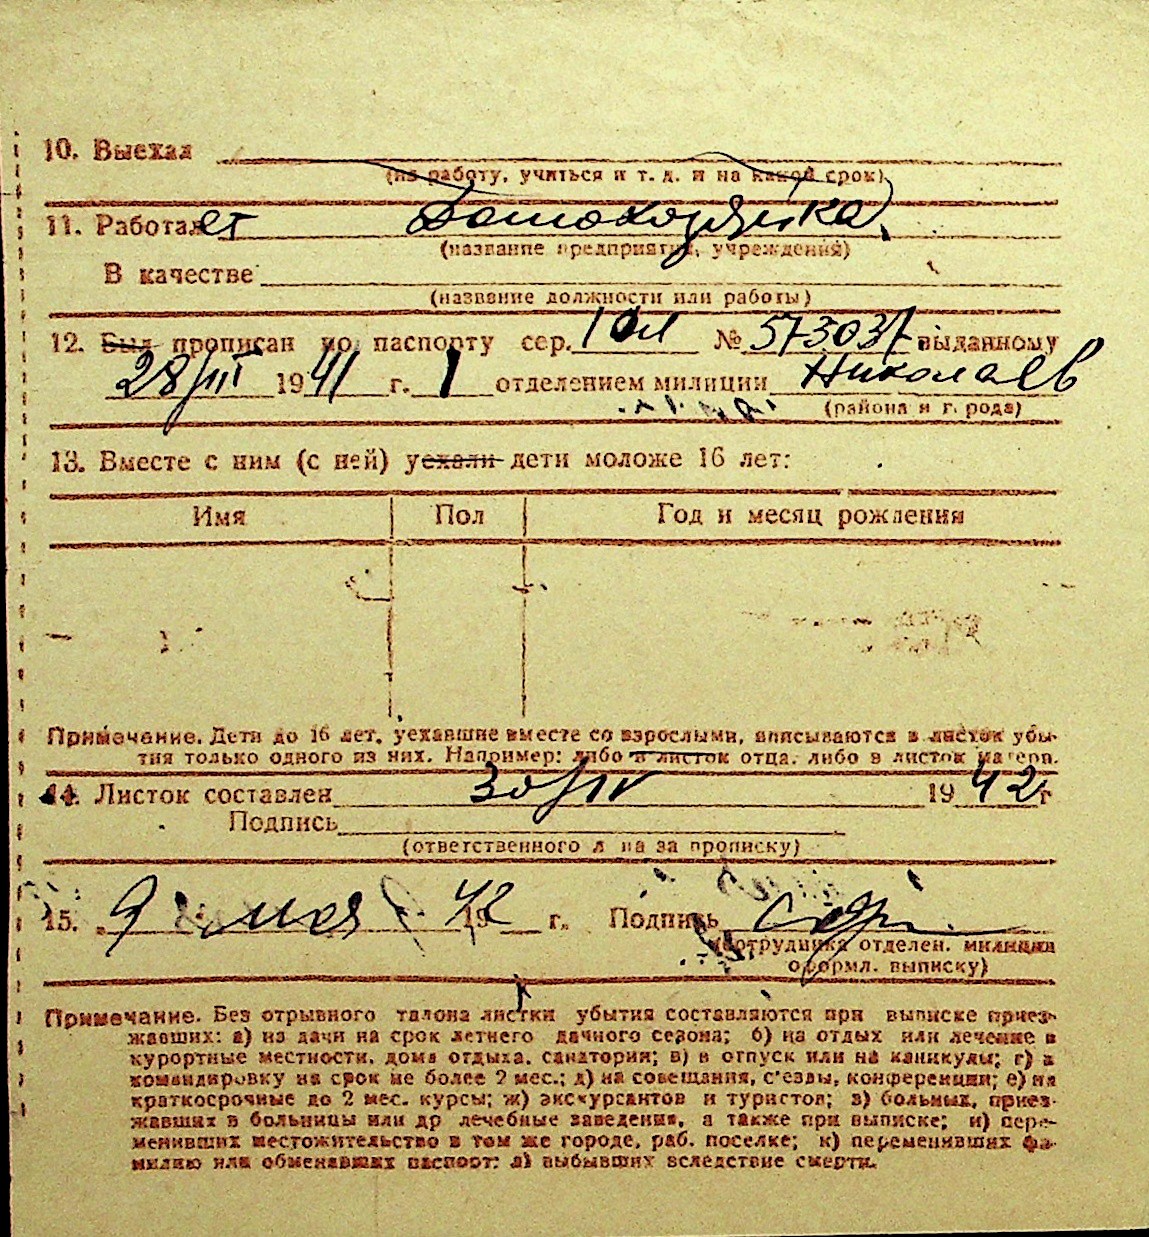 10. Выехал
(на работу, учиться и т. д. и на какой срок)
11. Работает Домохозяйка
(название предприятия, учреждения)
В качестве
(название должности или работы)
12. Был прописан по паспорту сер. № 573037 выданному
28/III 1941 г. 1 отделением милиции Николаев
(района и города)
13. Вместе с ним (с ней) уехали дети моложе 16 лет:
Имя Пол Год и месяц рождения
Примечание. Дети до 16 лет, уехавшие вместе со взрослыми, вписываются в листок убы-
тия только одного из них. Например: либо в листок отца, либо в листок матери.
14. Листок составлен 30/IV 1942 г
Подпись
(ответственного л на за прописку)
15. 9 мая 1942 г. Подпись
(сотрудника отделен. милиции
оформл. выписку)
Примечание. Без отрывного талона листки убытия составляются при выписке приез-
жавших: а) из дачи на срок летнего дачного сезона; б) на отдых или лечение в
курортные местности, дома отдыха, санатории; в) в отпуск или на каникулы; г) в
командировку на срок не более 2 мес.; д) на совещания, с'езды, конференции; е) на
краткосрочные до 2 мес. курсы; ж) экскурсантов и туристов; з) больных, приез-
жавших в больницы или др лечебные заведения, а также при выписке; и) пере-
менивших местожительство в том же городе, раб. поселке; к) переменивших фа-
милию или обменявших паспорт; л) выбывших вследствие смерти.